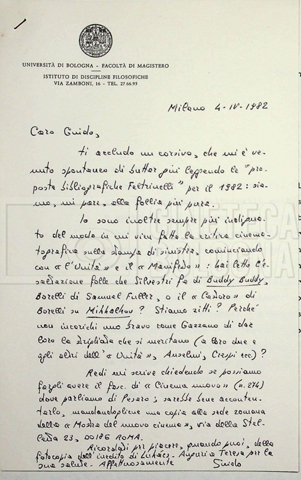 UNIVERSITÀ DI BOLOGNA - FACOLTÀ DI MAGISTERO
ISTITUTO DI DISCIPLINE FILOSOFICHE
VIA ZAMBONI, 38 - TEL. 27.66.95
Milano 4-IV-1982
Caro Guido,
ti accludo un corsivo, che mi è ve-
nuto spontaneo di buttar giù leggendo le "pro-
poste bibliografiche Feltrinelli" per il 1982: sia-
mo, mi pare, alla follia più pura.
Io sono inoltre sempre più indigna-
to del modo in cui vien fatta la critica cinema-
tografica sulla stampa di sinistra, cominciando
con "l'Unità" e il "Manifesto": hai letto l'e-
saltazione folle che Silvestri fa di Buddy Buddy,
Borelli di Samuel Fuller, o il "Casiraghi" di
Borelli su Mikhalkov? Stiamo zitti? Perché
non incarichi uno bravo come Gazzano di dar
loro la strigliata che si meritano (a loro due e
agli altri dell'"Unità", Anselmi, Crespi ecc)?
Redi mi scrive chiedendo se possiamo
fargli avere il fasc. di "Cinema nuovo" (n. 274)
dove parliamo di Pesaro: sarebbe bene acconten-
tarlo, mandandogliene una copia alla sede romana
della "Mostra del nuovo cinema", via della Stel-
letta 23, 00186 ROMA.
Ricordati per piacere, quando puoi, della
fotocopia dell'inedito di Lukács. Auguri a Teresa per la
sua salute. Affettuosamente Guido